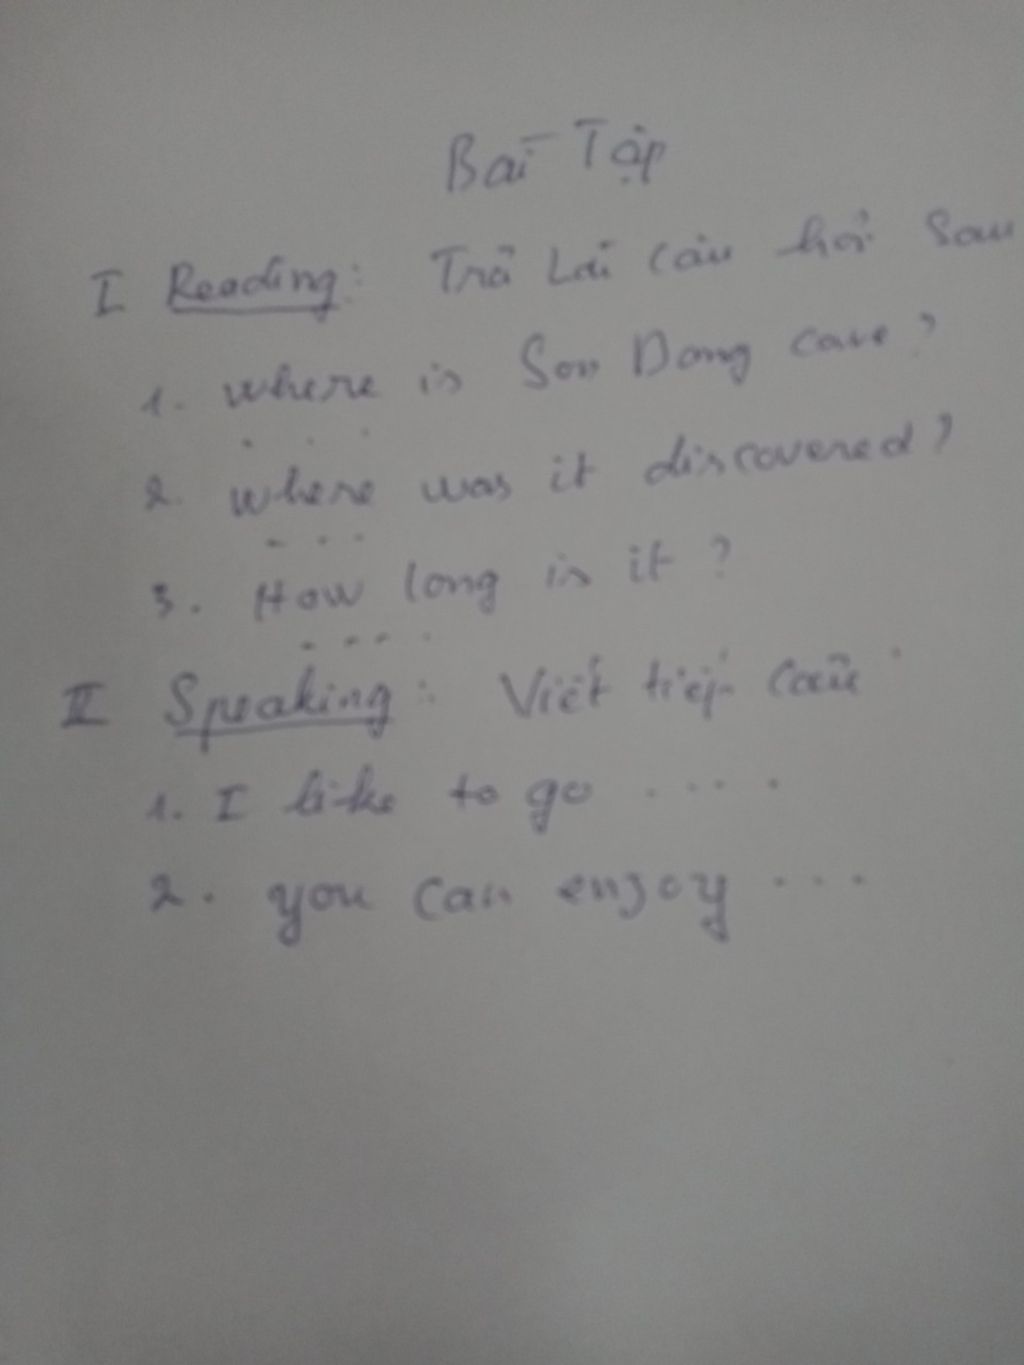 Bài Tập
I Reading: Trả Lời câu hỏi sau
1. where is Son Dong cave?
...
2. where was it discovered?
...
3. How long is it?
....
II Speaking: Viết tiếp câu
1. I like to go ....
2. you can enjoy ...